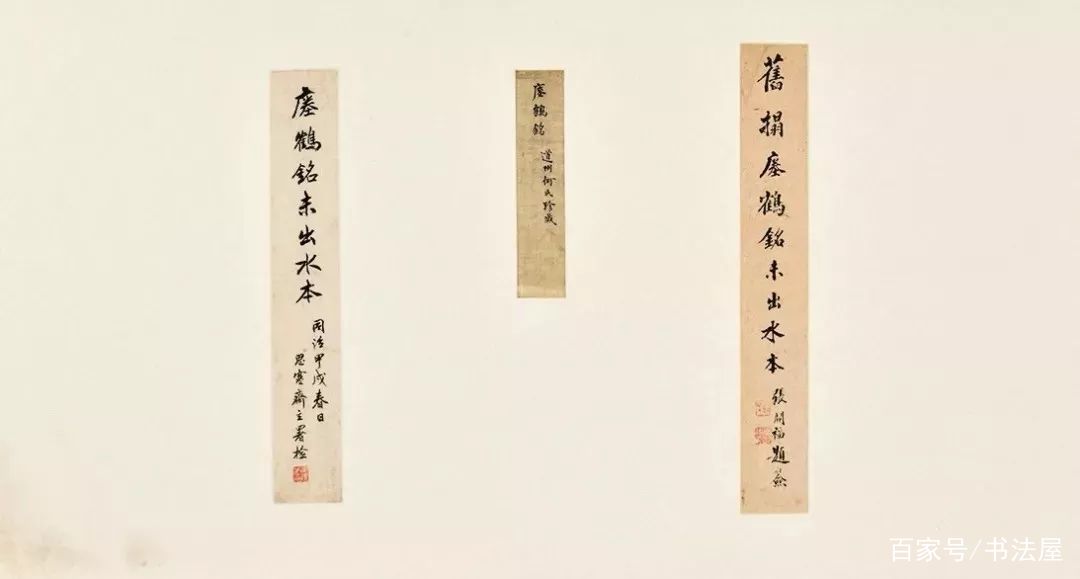 舊搨瘞鶴銘未出水本
張開福題簽
瘞鶴銘
道州何氏珍藏
瘞鶴銘未出水本
同治甲戌春日
思寒齋主署檢
百家号/书法屋